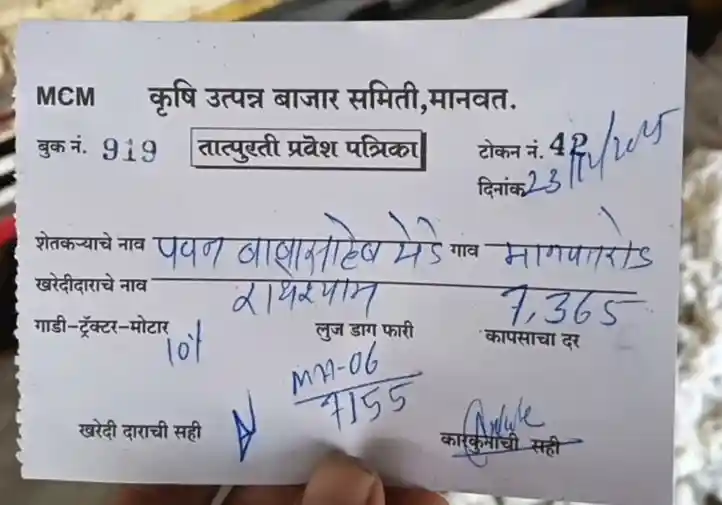 MCM कृषि उत्पन्न बाजार समिती,मानवत.
बुक नं. 919 तात्पुरती प्रवेश पत्रिका टोकन नं. 42
दिनांक 23
शेतकऱ्याचे नाव पवन बाबासाहेब गाव मानवतरोड
खरेदीदाराचे नाव राधेश्याम 7,365
गाडी-ट्रॅक्टर-मोटार लुज डाग फारी कापसाचा दर
MH-06
7155
खरेदी दाराची सही कारकुनाची सही